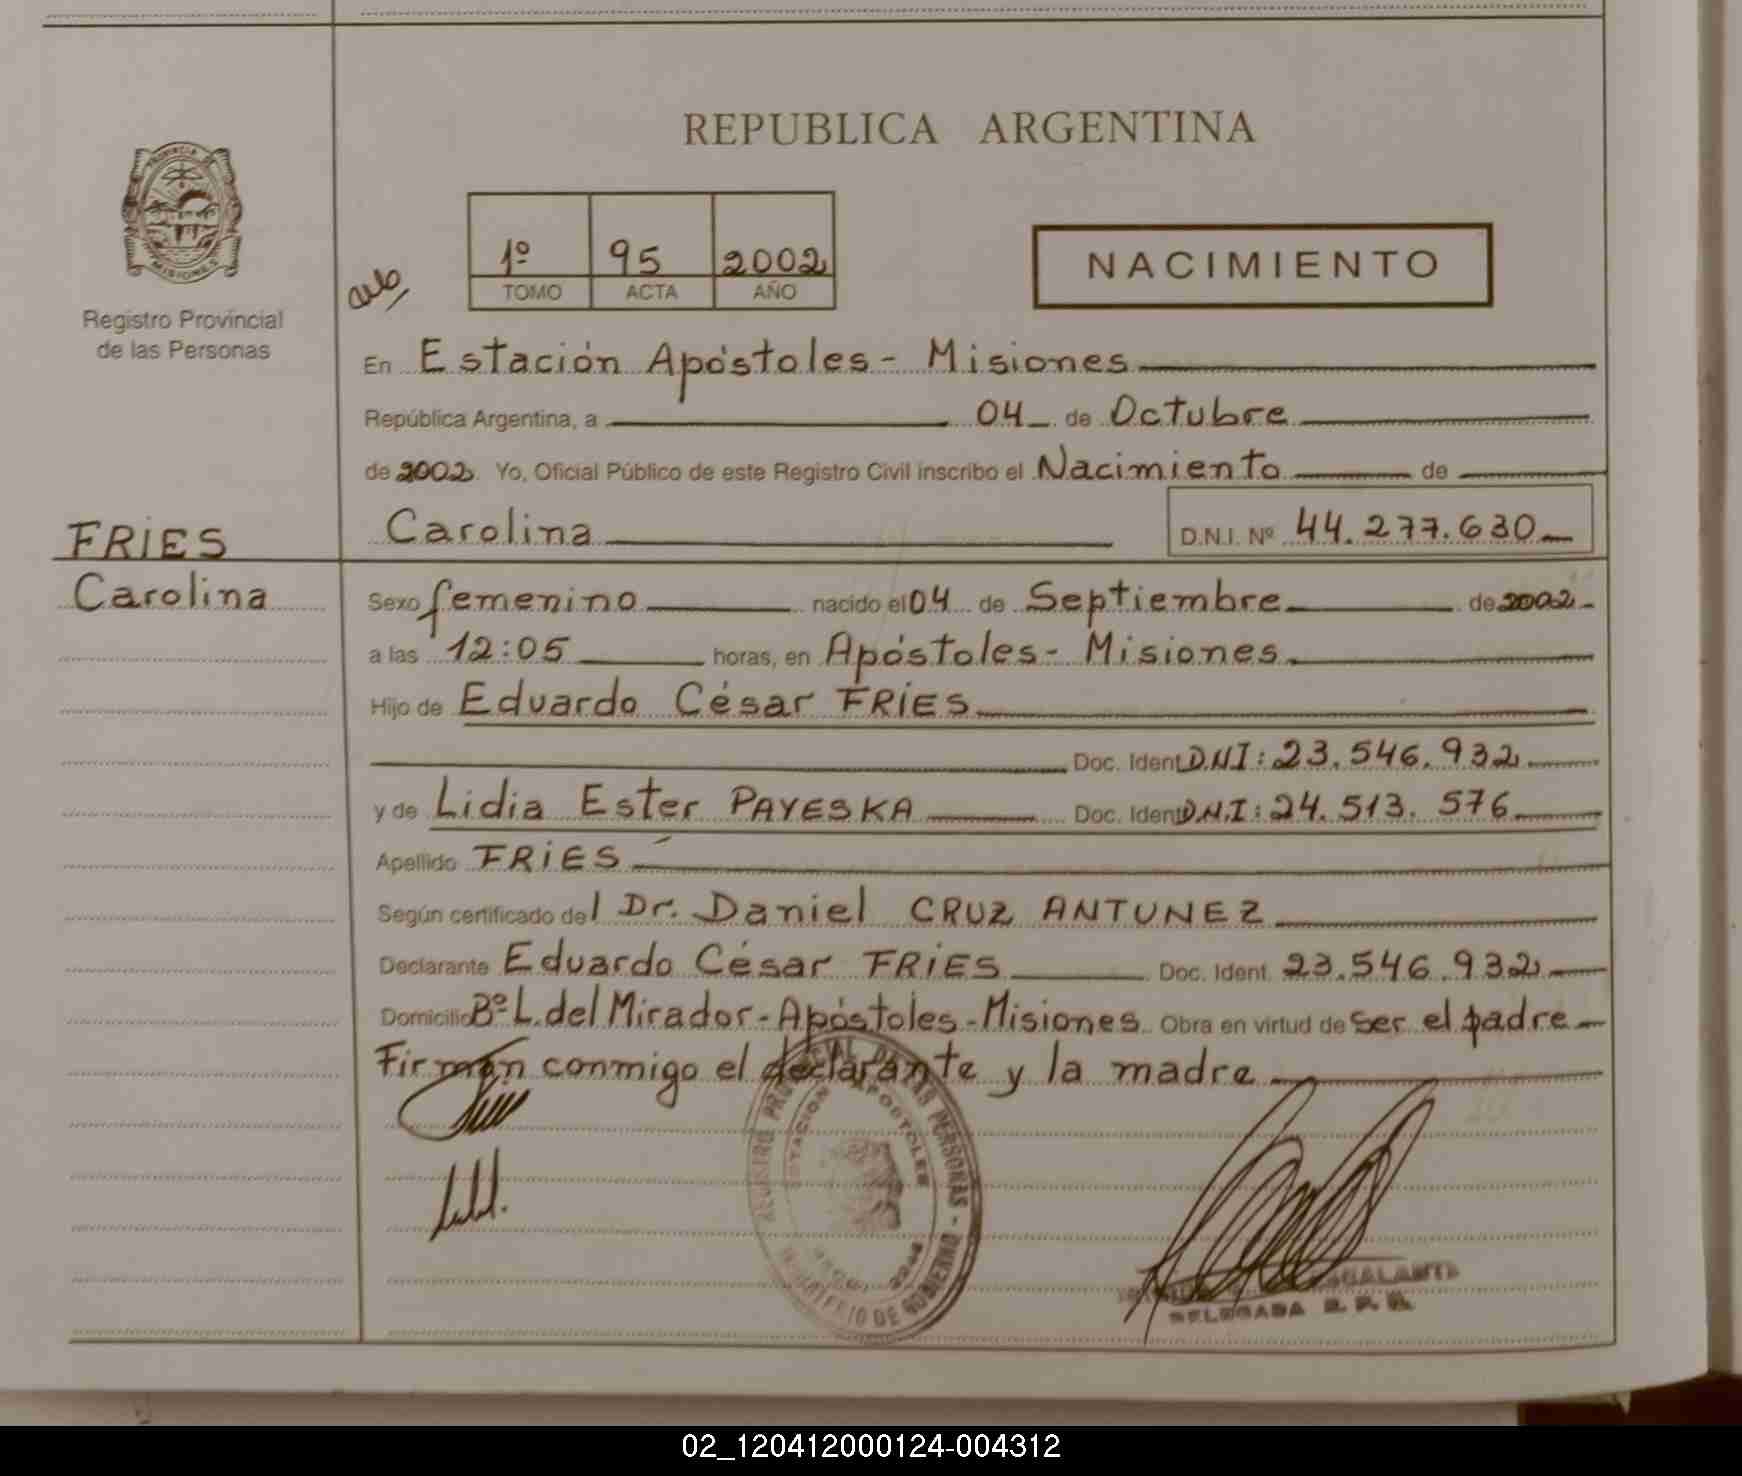 REPUBLICA ARGENTINA
PROVINCIA DE
MISIONES
Registro Provincial
de las Personas
1º 95 2002
TOMO ACTA AÑO
NACIMIENTO
En Estación Apóstoles - Misiones
República Argentina, a 04 de Octubre
de 2002 Yo, Oficial Público de este Registro Civil inscribo el Nacimiento de
FRIES
Carolina
Carolina D.N.I. Nº 44.277.630
Sexo femenino nacido el 04 de Septiembre de 2002
a las 12:05 horas, en Apóstoles - Misiones
Hijo de Eduardo César FRIES
Doc. Ident D.N.I: 23.546.932
y de Lidia Ester PAYESKA Doc. Ident D.N.I: 24.513.576
Apellido FRIES
Según certificado del Dr. Daniel CRUZ ANTUNEZ
Declarante Eduardo César FRIES Doc. Ident. 23.546.932
Domicilio Bº L. del Mirador - Apóstoles - Misiones Obra en virtud de ser el padre
Firman conmigo el declarante y la madre
REGISTRO PROVINCIAL DE LAS PERSONAS - MINISTERIO DE GOBIERNO
ESTACION APOSTOLES
DELEGADA R. P. P.
02_120412000124-004312